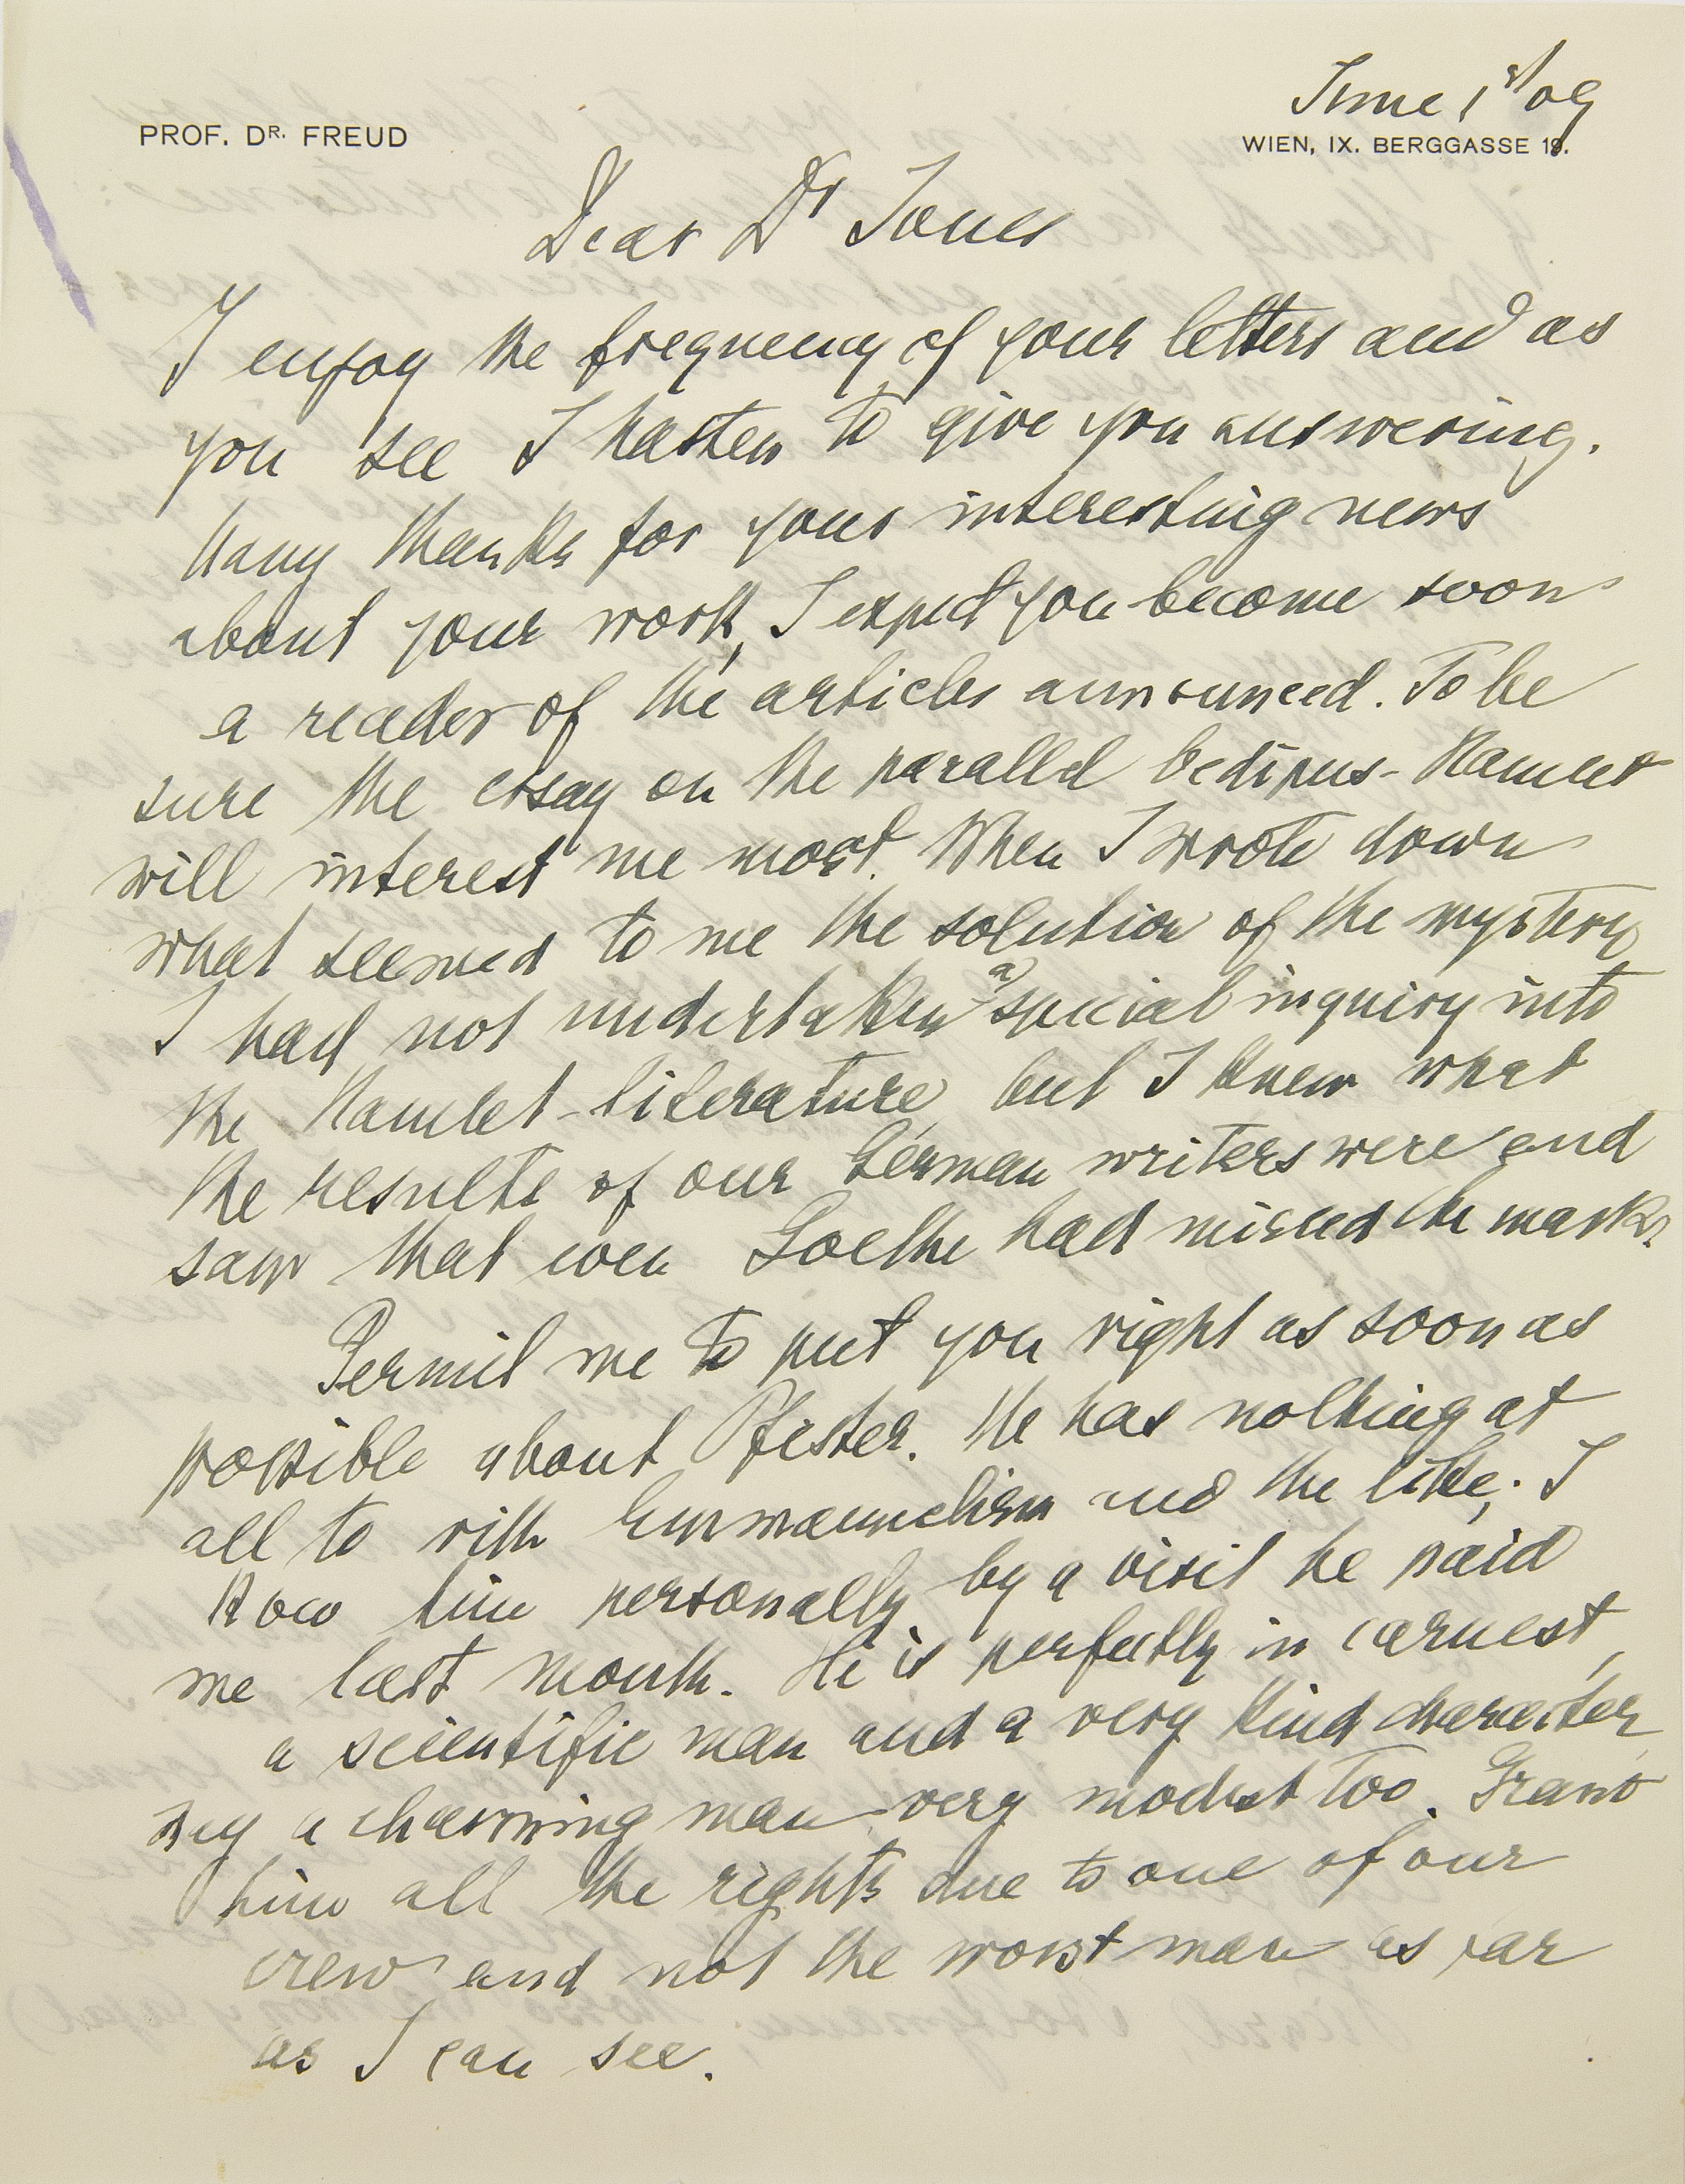 June 1st 09
PROF. DR. FREUD
WIEN, IX. BERGGASSE 19.
Dear Dr Jones
I enjoy the frequency of your letters and as
you see I hasten to give you answering.
Many thanks for your interesting news
about your work, I expect you become soon
a reader of the articles announced. To be
sure the essay on the parallel Oedipus-Hamlet
will interest me most. When I wrote down
what seemed to me the solution of the mystery
I had not undertaken a special inquiry into
the Hamlet-literature, but I knew what
the results of our German writers were and
saw that even Goethe had missed the mark.
Permit me to put you right as soon as
possible about Pfister. He has nothing at
all to with Emmanuelism and the like; I
know him personally by a visit he paid
me last month. He is perfectly in earnest,
a scientific man and a very kind character,
nay a charming man very modest too. Grant
him all the rights due to one of our
crew and not the worst man as far
as I can see.